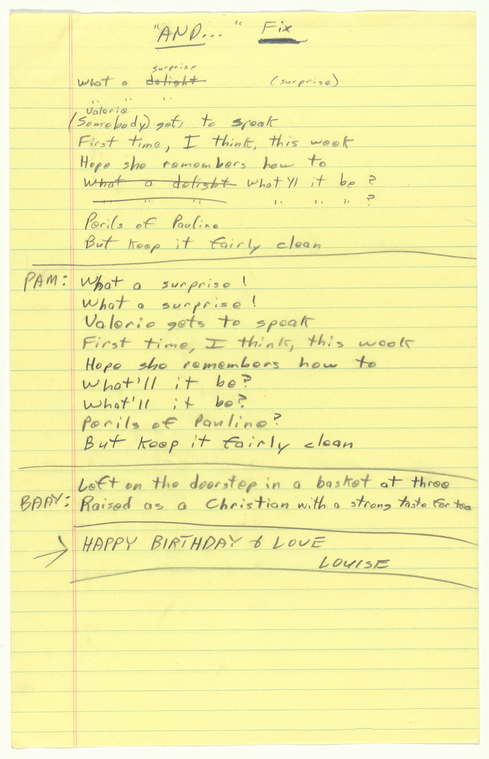 "AND..." Fix
surprise
What a delight (surprise)
" " "
Valerie
(Somebody) gets to speak
First time, I think, this week
Hope she remembers how to
What a delight What'll it be?
" " " ?
Perils of Pauline
But keep it fairly clean
PAM: What a surprise!
What a surprise!
Valerie gets to speak
First time, I think, this week
Hope she remembers how to
What'll it be?
What'll it be?
Perils of Pauline?
But keep it fairly clean
Left on the doorstep in a basket at three
BABY: Raised as a Christian with a strong taste for tea
HAPPY BIRTHDAY & LOVE
LOUISE